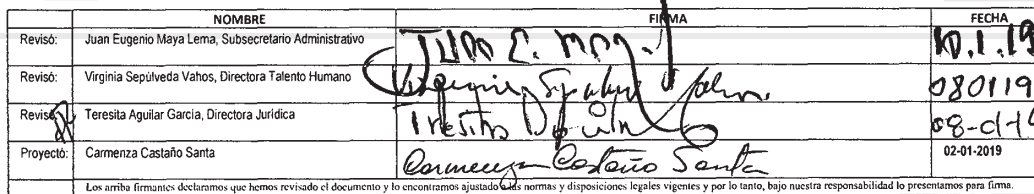 NOMBRE FIRMA FECHA
Revisó: Juan Eugenio Maya Lema, Subsecretario Administrativo 10.1.19
Revisó: Virginia Sepúlveda Vahos, Directora Talento Humano 080119
Revisó: Teresita Aguilar García, Directora Jurídica Teresita Aguilar
Proyectó: Carmenza Castaño Santa Carmenza Castaño Santa 02-01-2019
Los arriba firmantes declaramos que hemos revisado el documento y lo encontramos ajustado a las normas y disposiciones legales vigentes y por lo tanto, bajo nuestra responsabilidad lo presentamos para firma.